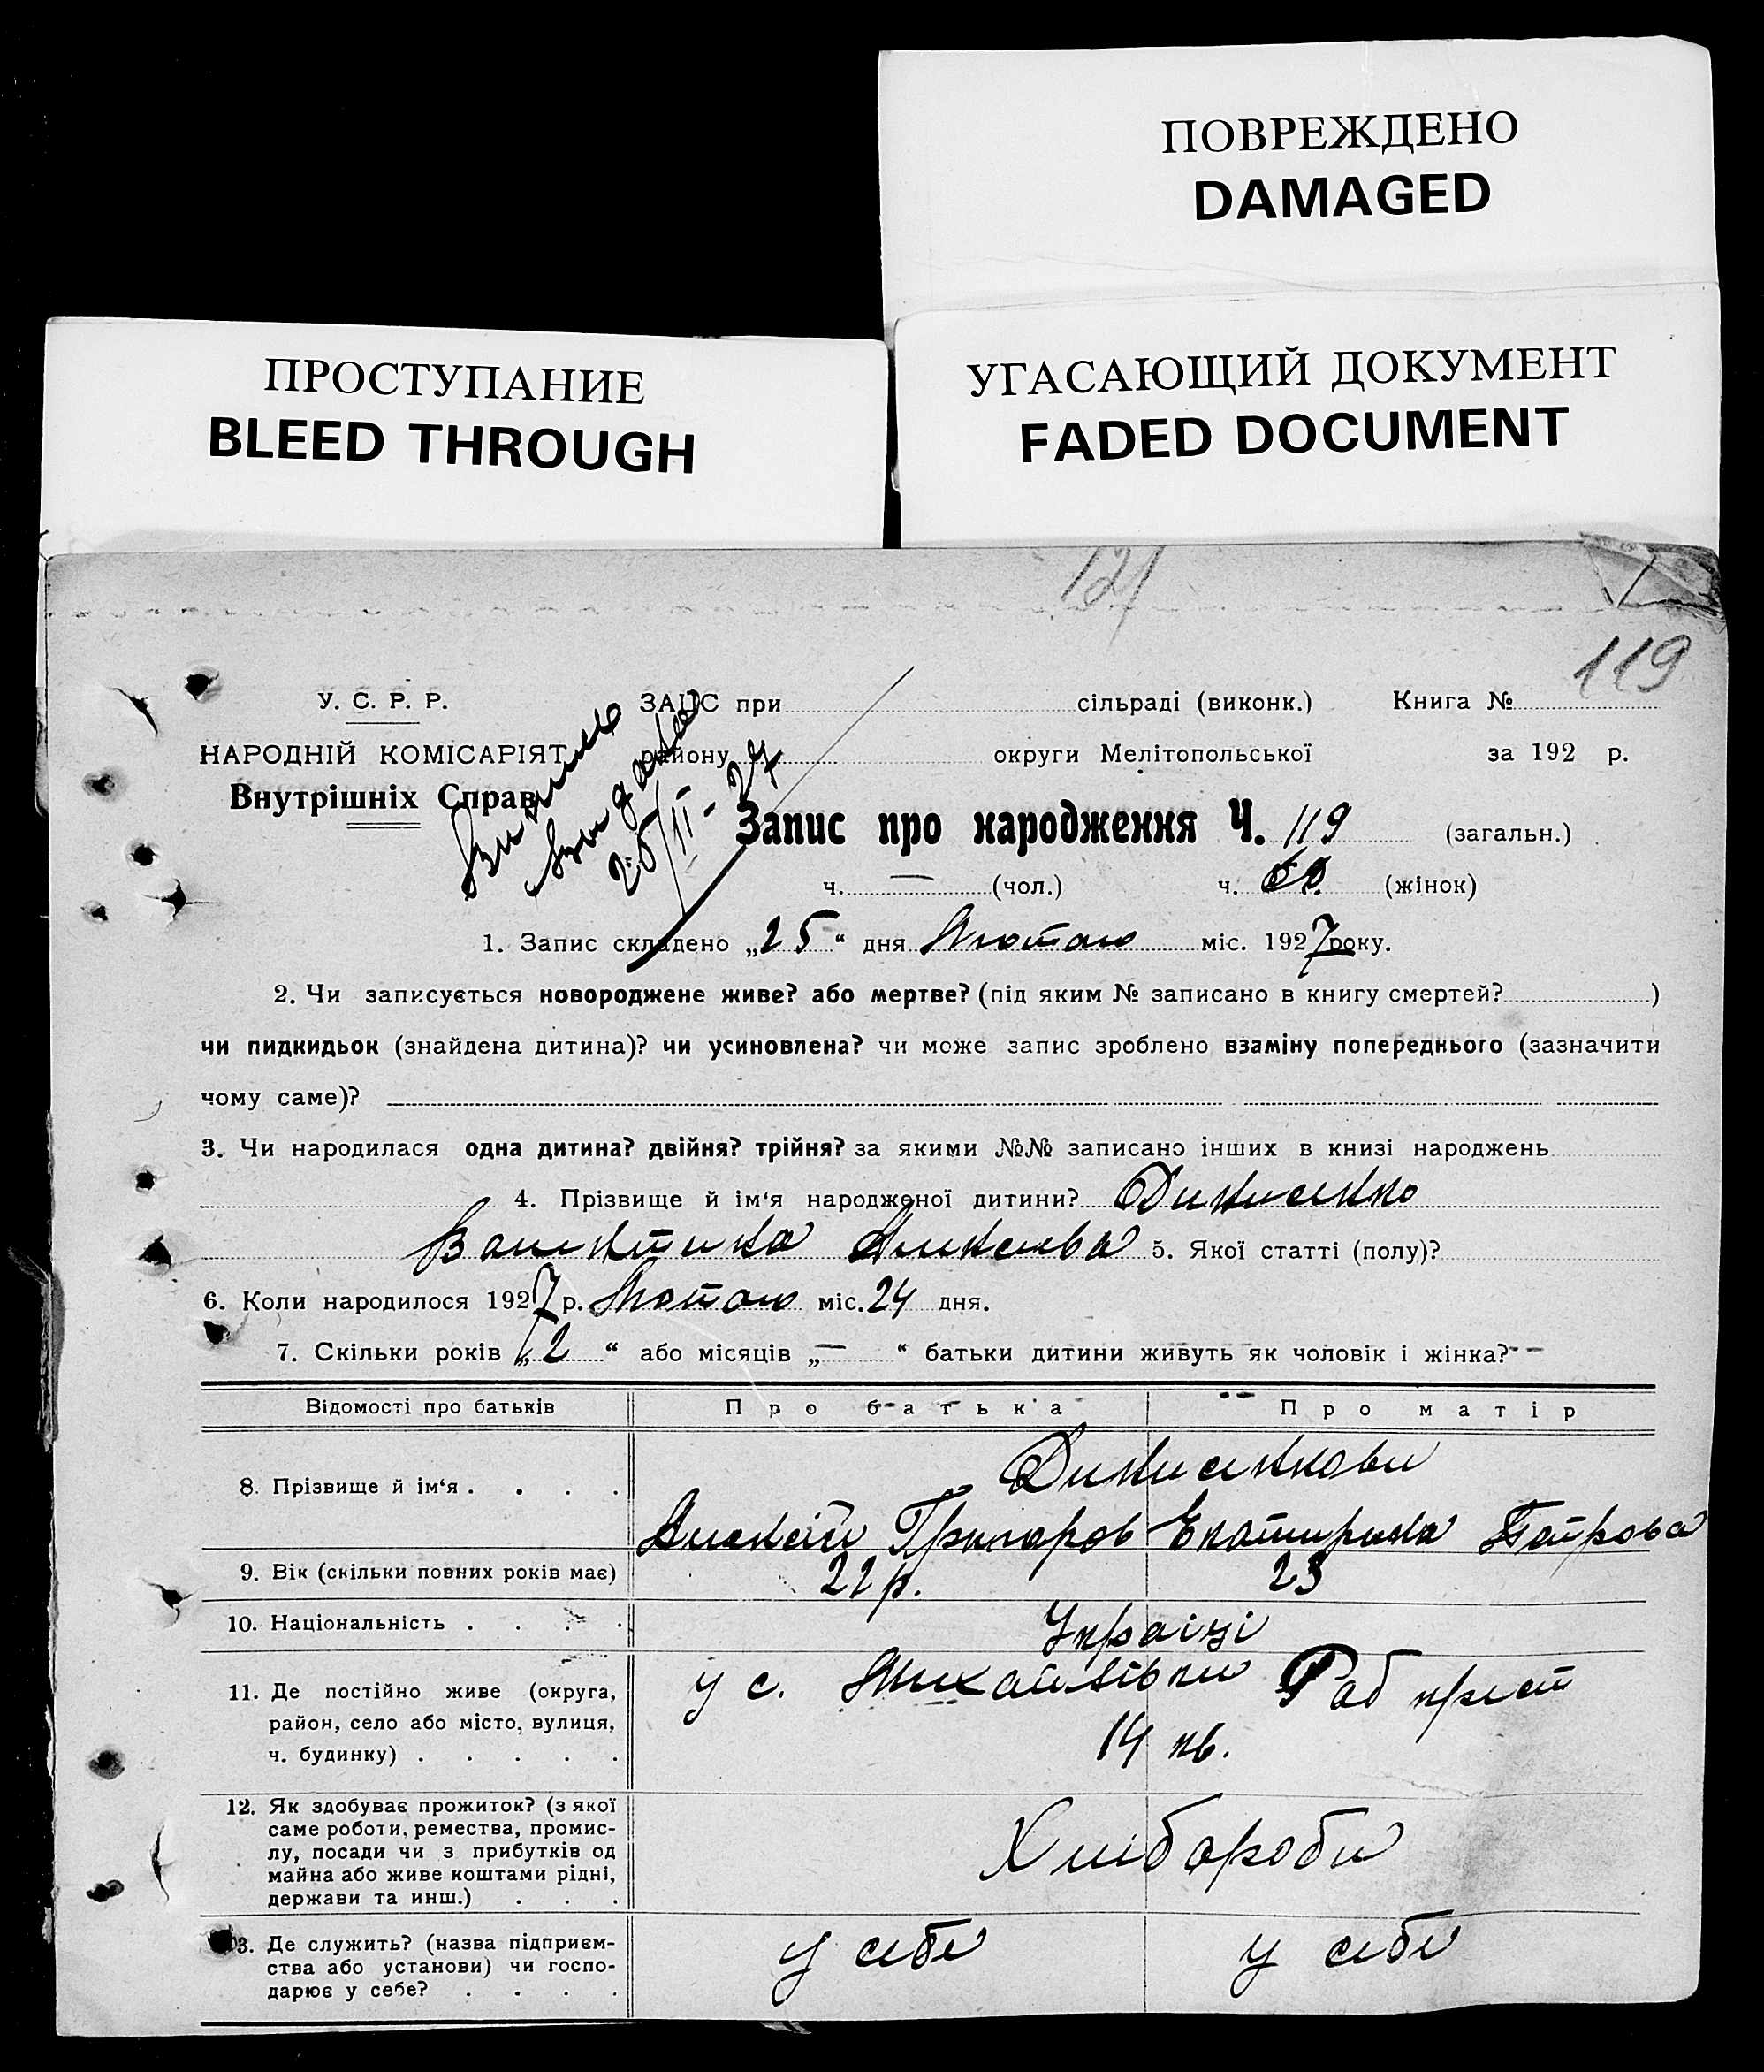 ПОВРЕЖДЕНО
DAMAGED
ПРОСТУПАНИЕ
BLEED THROUGH
УГАСАЮЩИЙ ДОКУМЕНТ
FADED DOCUMENT
121
119
У. С. Р. Р.
ЗАПС при сільраді (виконк.) Книга №
НАРОДНІЙ КОМІСАРІЯТ району округи Мелітопольської за 192 р.
Внутрішніх Справ
25/II-27
Запис про народження Ч. 119 (загальн.)
ч. — (чол.) ч. (жінок)
1. Запис складено „25“ дня Лютого міс. 1927 року.
2. Чи записується новороджене живе? або мертве? (під яким № записано в книгу смертей? )
чи пидкидьок (знайдена дитина)? чи усиновлена? чи може запис зроблено взаміну попереднього (зазначити
чому саме)?
3. Чи народилася одна дитина? двійня? трійня? за якими №№ записано інших в книзі народжень
4. Прізвище й ім‘я народженої дитини? Динисенко
Валентина 5. Якої статті (полу)?
6. Коли народилося 1927 р. Лютого міс. 24 дня.
7. Скільки років „2“ або місяців „—“ батьки дитини живуть як чоловік і жінка?
Відомості про батьків Про батька Про матір
8. Прізвище й ім‘я . . . . Динисенкови
Алексей Григоров Екатирина Петрова
9. Вік (скільки повних років має) 22 р. 23
10. Національність . . . . Украінці
11. Де постійно живе (округа, район, село або місто, вулиця, ч. будинку) . . . . . у с. Михайлівки
14 кв.
12. Як здобуває прожиток? (з якої саме роботи, ремества, промислу, посади чи з прибутків од майна або живе коштами рідні, держави та инш.) . . . Хлибороби
13. Де служить? (назва підприємства або установи) чи господарює у себе? . . . . у себе у себе